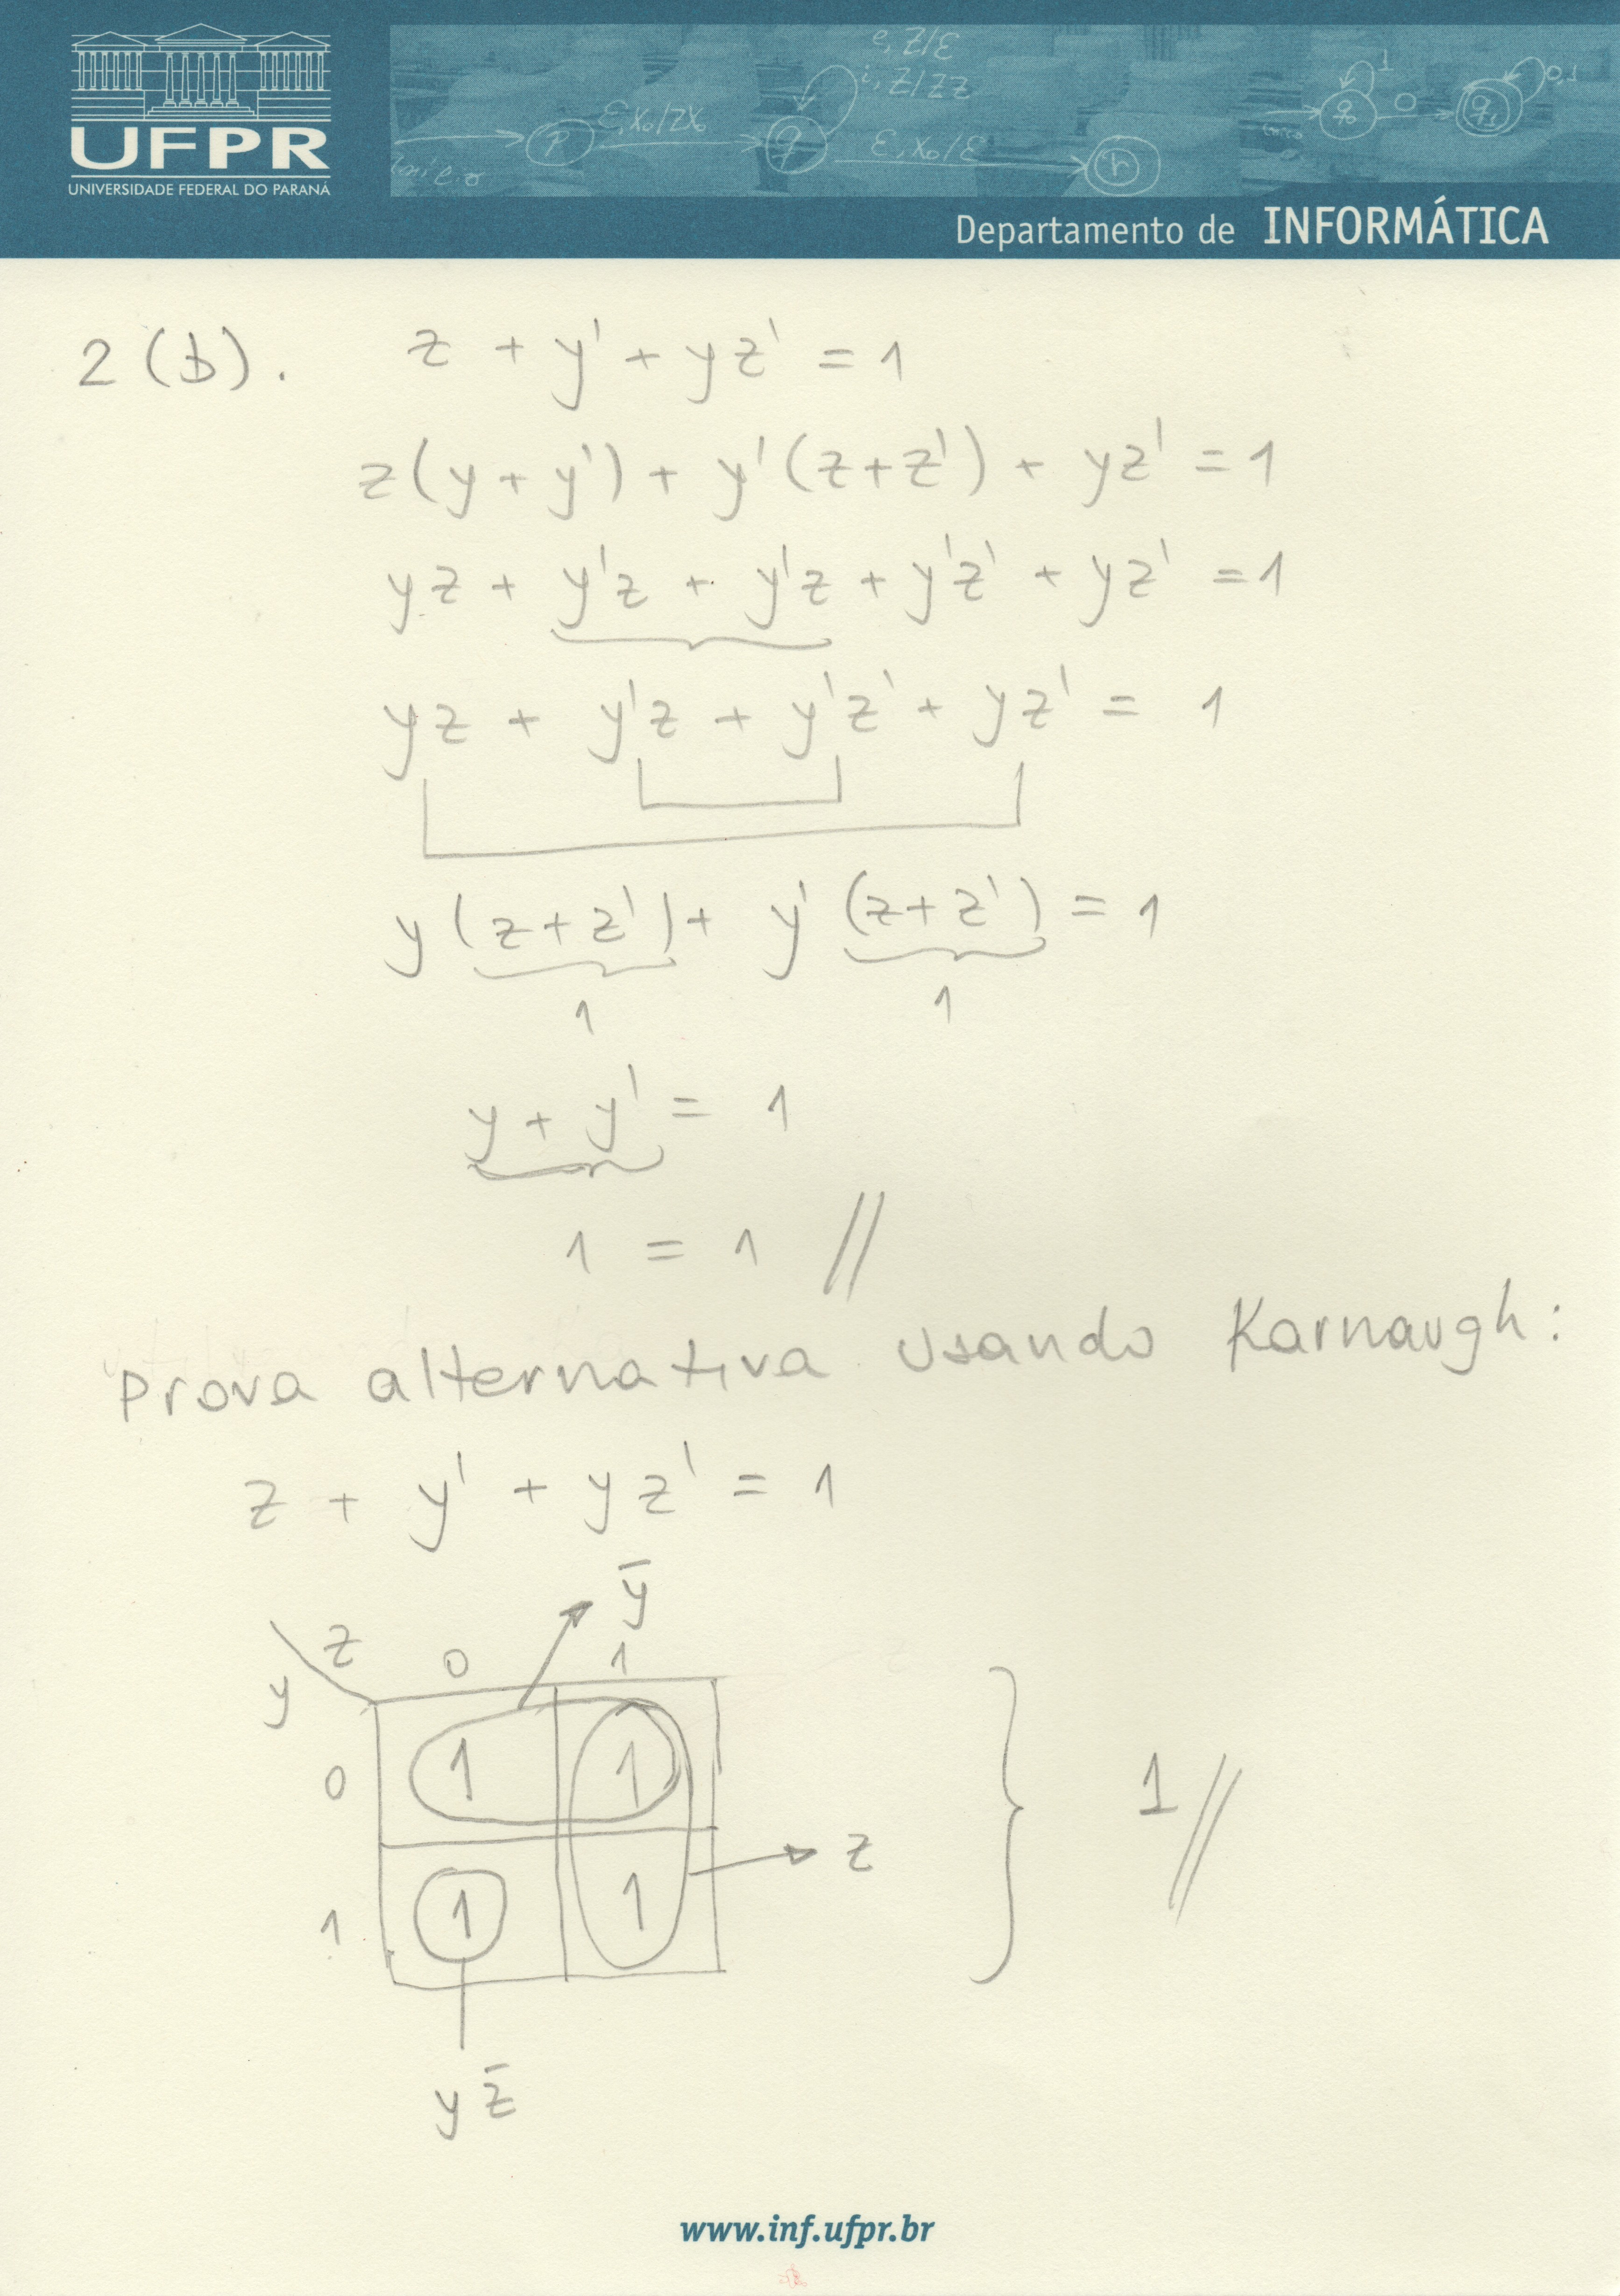 UFPR
UNIVERSIDADE FEDERAL DO PARANÁ
e, Z/ε
i, Z/ZZ
ε, X₀/ZX₀
ε, X₀/ε
p
q
r
1
0
0,1
q₀
q₁
Departamento de INFORMÁTICA
2(b). z + y' + yz' = 1
z(y + y') + y'(z+z') + yz' = 1
yz + y'z + y'z + y'z' + yz' = 1
yz + y'z + y'z' + yz' = 1
y(z+z') + y'(z+z') = 1
1 1
y + y' = 1
1 = 1 //
Prova alternativa usando Karnaugh:
z + y' + yz' = 1
y̅
z 0 1
y
0 1 1
1 //
z
1 1 1
y z̅
www.inf.ufpr.br